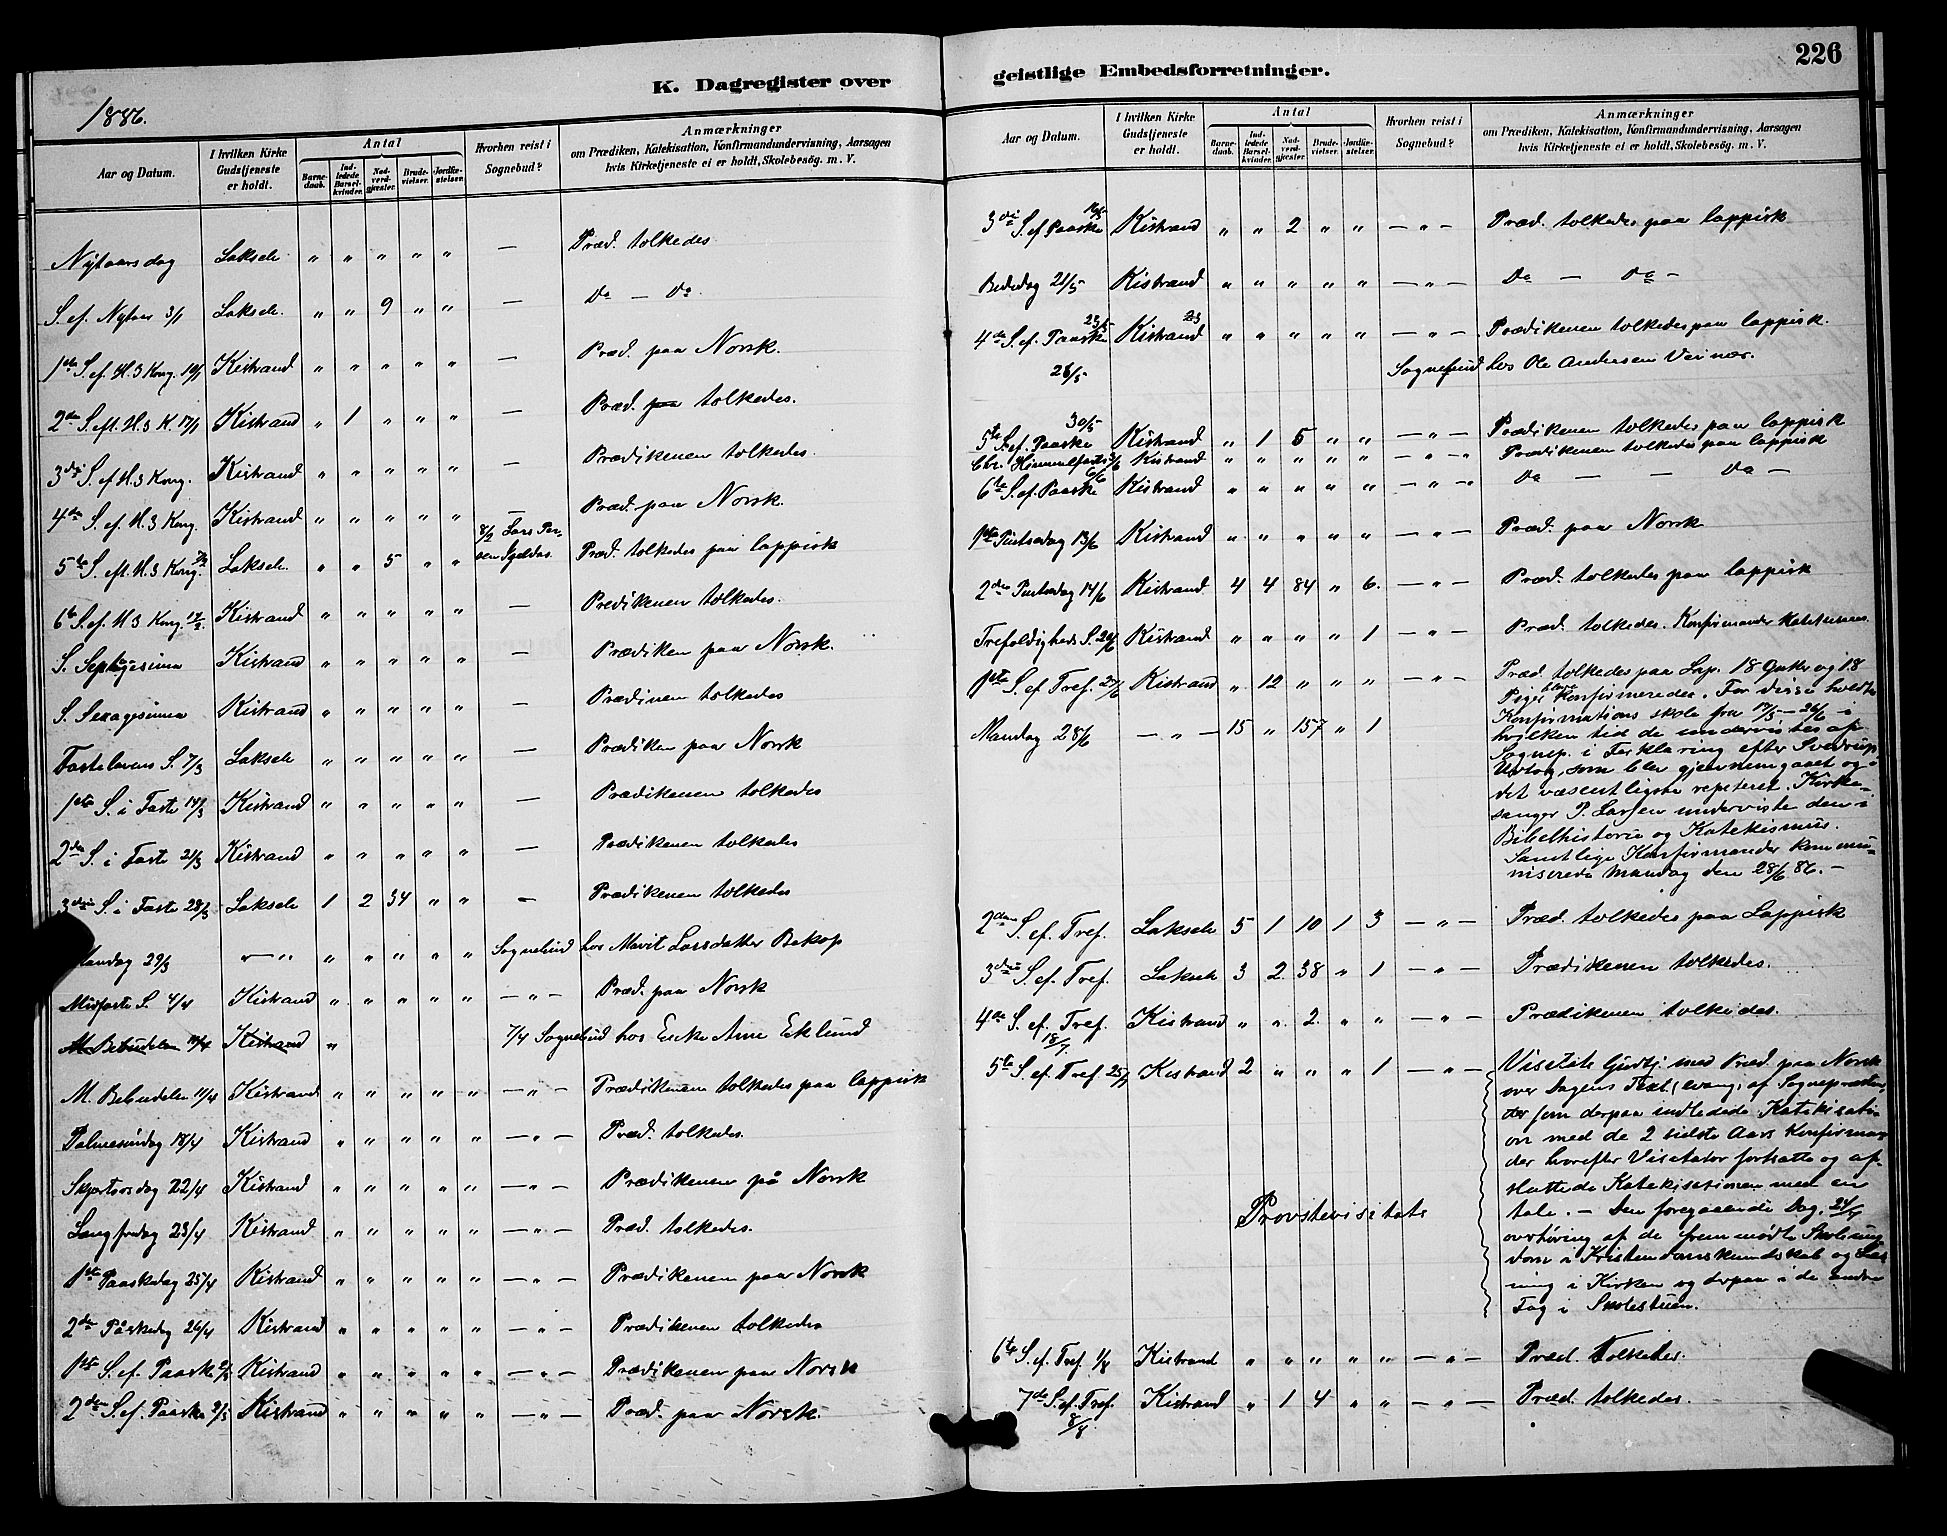 K. Dagregister over
1886.
Aar og Datum.
I hvilken Kirke Gudstjeneste er holdt.
Antal
Barnedaab.
Indledede Barselkvinder.
Nadverdgjester.
Brudevielser.
Jordfæstelser.
Hvorhen reist i Sognebud?
Anmærkninger
om Prædiken, Katekisation, Konfirmandundervisning, Aarsagen
hvis Kirketjeneste ei er holdt, Skolebesøg. m. V.
Nytaarsdag Laksele " " " " " — Præd. tolkedes
S. ef. Nytaar 3/1 Laksele. " " 9 " " — Do — Do.
1ste S. ef. H. 3 Kong. 10/1 Kistrand " " " " " — Præd. paa Norsk.
2den S. eft. H. 3 K. 17/1 Kistrand " 1 " " " — Præd. paa tolkedes.
3die S. ef H. 3 Kong. Kistrand " " " " " — Prædikenen tolkedes.
4de S. ef. H. 3 Kong. Kistrand " " " " " — Præd. paa Norsk.
5te S. eft. H. 3 Kong. 7/2 Laksele. " " 5 " " 8/2 Lars Præd. tolkedes paa lappisk
6te S. ef. H 3 Kong. 14/2. Kistrand " " " " " — Predikenen tolkedes.
S. Septuagesima Kistrand " " " " " — Prædiken paa Norsk.
S. Sexagesima Kistrand " " " " " — Prædinen tolkedes
Fastelavens S. 7/3 Laksele " " " " " — Prædiken paa Norsk
1ste S. i Faste 14/3 Kistrand " " " " " — Prædikenen tolkedes
2den S. i Faste 21/3 Kistrand " " " " " — Prædikenen tolkedes
3die S. i Faste 28/3 Laksele 1 2 34 " " — Prædikenen tolkedes
Mandag 29/3 " — " " " " " " Sognebud hos Marit Larsdatter
Midfaste S. 4/4 Kistrand " " " " " — " — Præd. paa Norsk
M. Bebudelse 11/4 Kistrand " 7/4 Sognebud hos Enke Ane Eklund
M. Bebudelse 11/4 Kistrand " " " " " — " — Prædikenen tolkedes paa lappisk
Palmesøndag 18/4 Kistrand " " " " " — " — Præd. tolkedes.
Skjærtorsdag 22/4 Kistrand " " " " " — " — Prædikenen på Norsk
Langfredag 23/4 Kistrand " " " " " — " — Præd. tolkedes.
1ste Paaskedag 25/4 Kistrand " " " " " — " — Prædikenen paa Norsk
2den Påskedag 26/4 Kistrand " " " " " — " — Prædikenen tolkedes
1ste S. ef. Paaske 2/5 Kistrand " " " " " — " — Prædikenen paa Norsk
2den S. ef. Paaske 9/5 Kistrand " " " " " — " — Præd. paa Norsk.
geistlige Embedsforretninger.
226
Aar og Datum.
I hvilken Kirke Gudstjeneste er holdt.
Antal
Barnedaab.
Indledede Barselkvinder.
Nadverdgjester.
Brudevielser.
Jordfæstelser.
Hvorhen reist i Sognebud?
Anmærkninger
om Prædiken, Katekisation, Konfirmandundervisning, Aarsagen
hvis Kirketjeneste ei er holdt, Skolebesøg. m. V.
3die S. ef Paaske 16/5 Kistrand " " 2 " " — " — Præd. tolkedes paa lappisk
Bededag 21/5 Kistrand " " " " " — " — Do — Do —
4de S. ef. Paaske 23/5 Kistrand " " " " " — " — Prædikenen tolkedes paa lappisk.
28/5 Sognebud hos Ole Andersen
5te S. ef. Paaske 30/5 Kistrand " 1 5 " " — " — Prædikenen tolkedes paa lappisk
Chr. Himmelfarts 3/6 Kistrand " " " " " — " — Prædikenen tolkedes paa lappisk
6te S. ef. Paaske 6/6 Kistrand " " " " " — " — Do — — Do —
1ste Pintsedag 13/6 Kistrand " " " " " — " — Præd. paa Norsk
2den Pintsedag 14/6 Kistrand 4 4 84 " 6. — " — Præd. tolkedes paa lappisk
Trefoldigheds S. 20/6 Kistrand " " " " 1 — " — Præd. tolkedes. Konfirmander
1ste S. ef Tref. 27/6 Kistrand " 12 " " " — " — Præd. tolkedes paa Lap. 18 Gutter og 18
Piger bleve Konfirmerede. For disse holdtes
Mandag 28/6 — " — 15 " 157 " 1 Konfirmations skole fra 17/5 — 26/6 i
hvilken tid de undervistes af
Sognep. i Forklaring efter Sverdrups
Udtog, som blev gjennemgaaet og i
det væsentligste repeteret. Kirke-
sanger P. Larsen underviste dem i
Bibelhistorie og Katekismus.
Samtlige Konfirmander kommu-
niserede Mandag den 28/6 86. —
2den S. ef. Tref. Laksele 5 1 10 1 3 — " — Præd. tolkedes paa Lappisk
3die S. ef. Tref. Laksele 3 2 38 " 1 — " — Prædikenen tolkedes.
4de S. ef. Tref. 18/7. Kistrand " " 2 " " — " — Prædikenen tolkedes.
5te S. ef. Tref 25/7 Kistrand 2 " " " 1 — " — Visitats Gudstj. med Præd. paa Norsk
over Dagens Text (evang. af Sognepræsten,
der som derpaa indledede Katekisati-
on med de 2 sidste Aars Konfirman-
der hvorefter Visitator fortsatte og af-
sluttede Katekisationen med en
Provstevisitats
tale. — Den foregaaende Dag, 24/7
overhøring af de fremmødte Skoleung-
dom i Kristendomskundskab og Læs-
ning i Kirken og derpaa i de andre
Fag i Skolestuen.
6te S. ef. Tref. 1/8 Kistrand " " " " " — " — Præd. Tolkedes.
7de S. ef. Tref. 8/8 Kistrand " 1 4 " " — " — Præd. tolkedes.